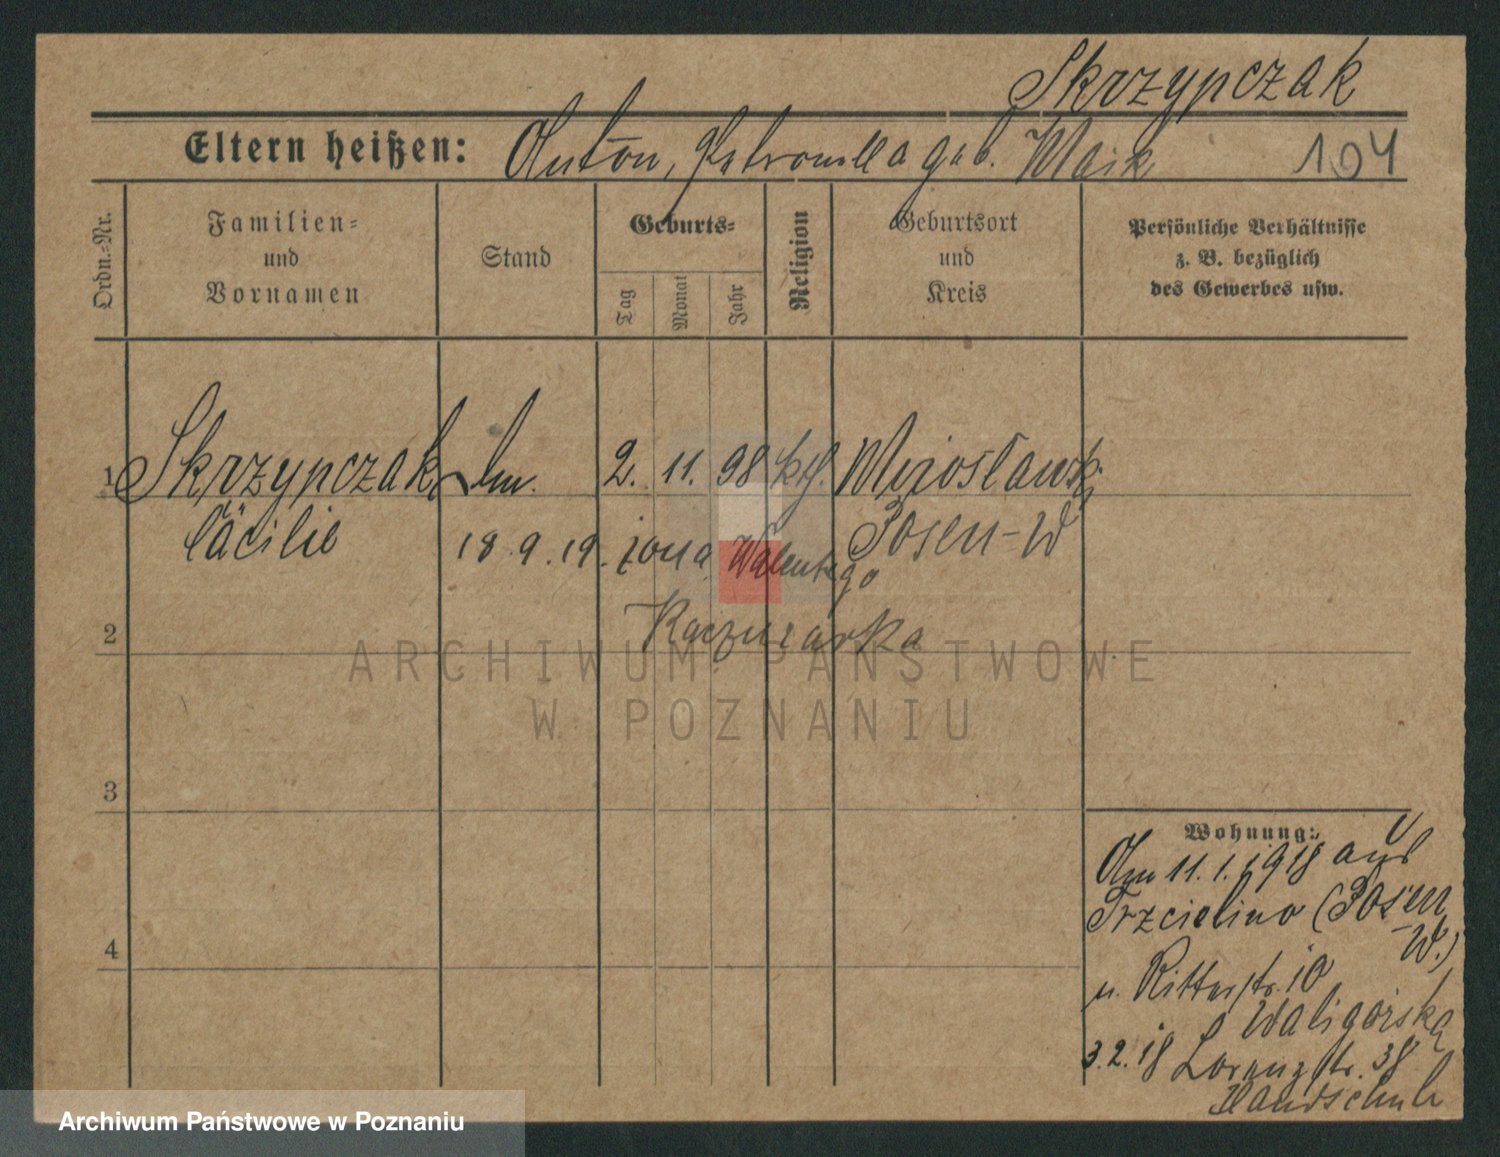 Skrzypczak
Eltern heißen: Anton, Petronella geb. Maik 104
Ordn.-Nr.
Familien- und Vornamen
Stand
Geburts-
Tag
Monat
Jahr
Religion
Geburtsort und Kreis
Persönliche Verhältnisse z. B. bezüglich des Gewerbes usw.
1 Skrzypczak 2. 11. 98 kth. Mirosławki
Cäcilie Posen-W
18.9.19. żona Walentego
Kaczmarka
2
ARCHIWUM PAŃSTWOWE
W POZNANIU
3
4
Wohnung:
Am 11.1.1918 aus
Trzcielino (Posen
-W.)
n. Ritterstr. 10
Waligórska
3.2.18 Lorenzstr. 38
Handschuh
Archiwum Państwowe w Poznaniu